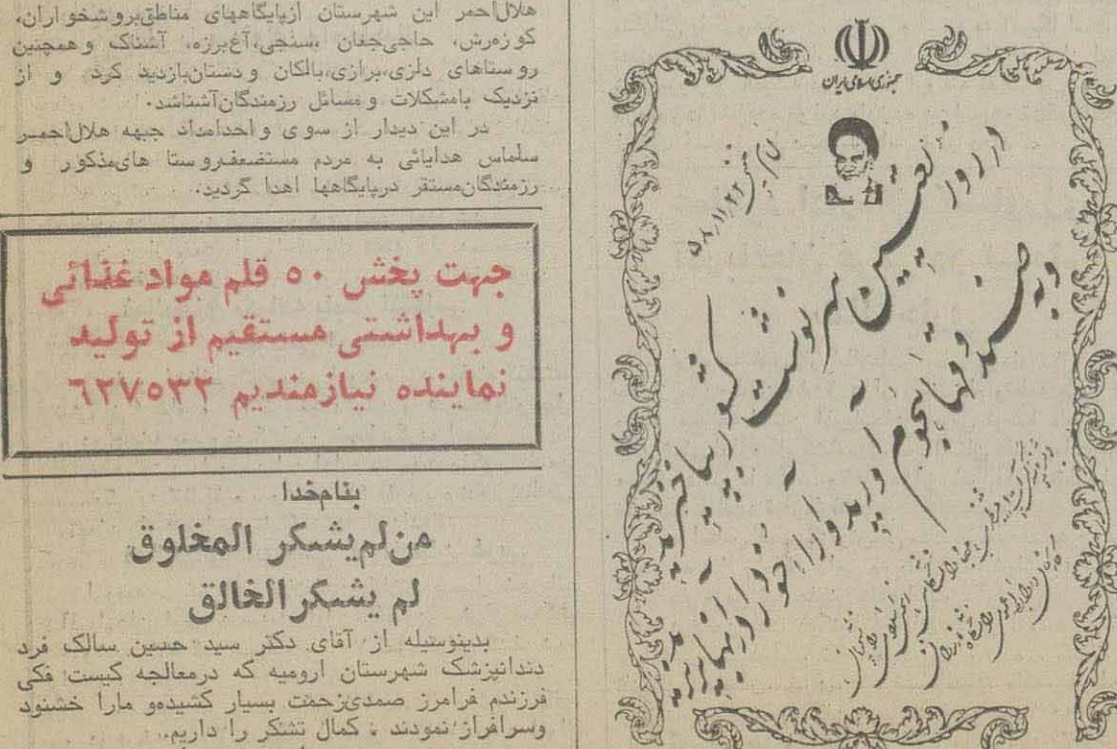 هلال‌احمر این شهرستان ازپایگاههای مناطق‌بروشخواران،
کوزه‌رش، حاجی‌جفان ،سنجی،آغ‌برزه، آشناک وهمچنین
روستاهای دلزی،برازی،بالکان ودستان‌بازدید کرد و از
نزدیک بامشکلات ومسائل رزمندگان‌آشناشد.
در این دیدار از سوی واحدامداد جبهه هلال‌احمر
سلماس هدایائی به مردم مستضعف‌روستا های‌مذکور و
رزمندگان‌مستقر درپایگاهها اهدا گردید.
جهت پخش ۵۰ قلم مواد غذائی
و بهداشتی مستقیم از تولید
نماینده نیازمندیم ۶۲۷۵۳۲
بنام‌خدا
من‌لم‌یشکر المخلوق
لم یشکرالخالق
بدینوسیله از آقای دکتر سید حسین سالک فرد
دندانپزشک شهرستان ارومیه که درمعالجه کیست فکی
فرزندم فرامرز صمدی‌زحمت بسیار کشیده‌و مارا خشنود
وسرافراز نمودند ، کمال تشکر را داریم.
جمهوری اسلامی ایران
امام خمینی ۵۸،۱۱،۲۴
در روز تعیین سرنوشت کشور بپاخیزید
وبه صندوقها هجوم آورید و آراء خود را در آنها بریزید